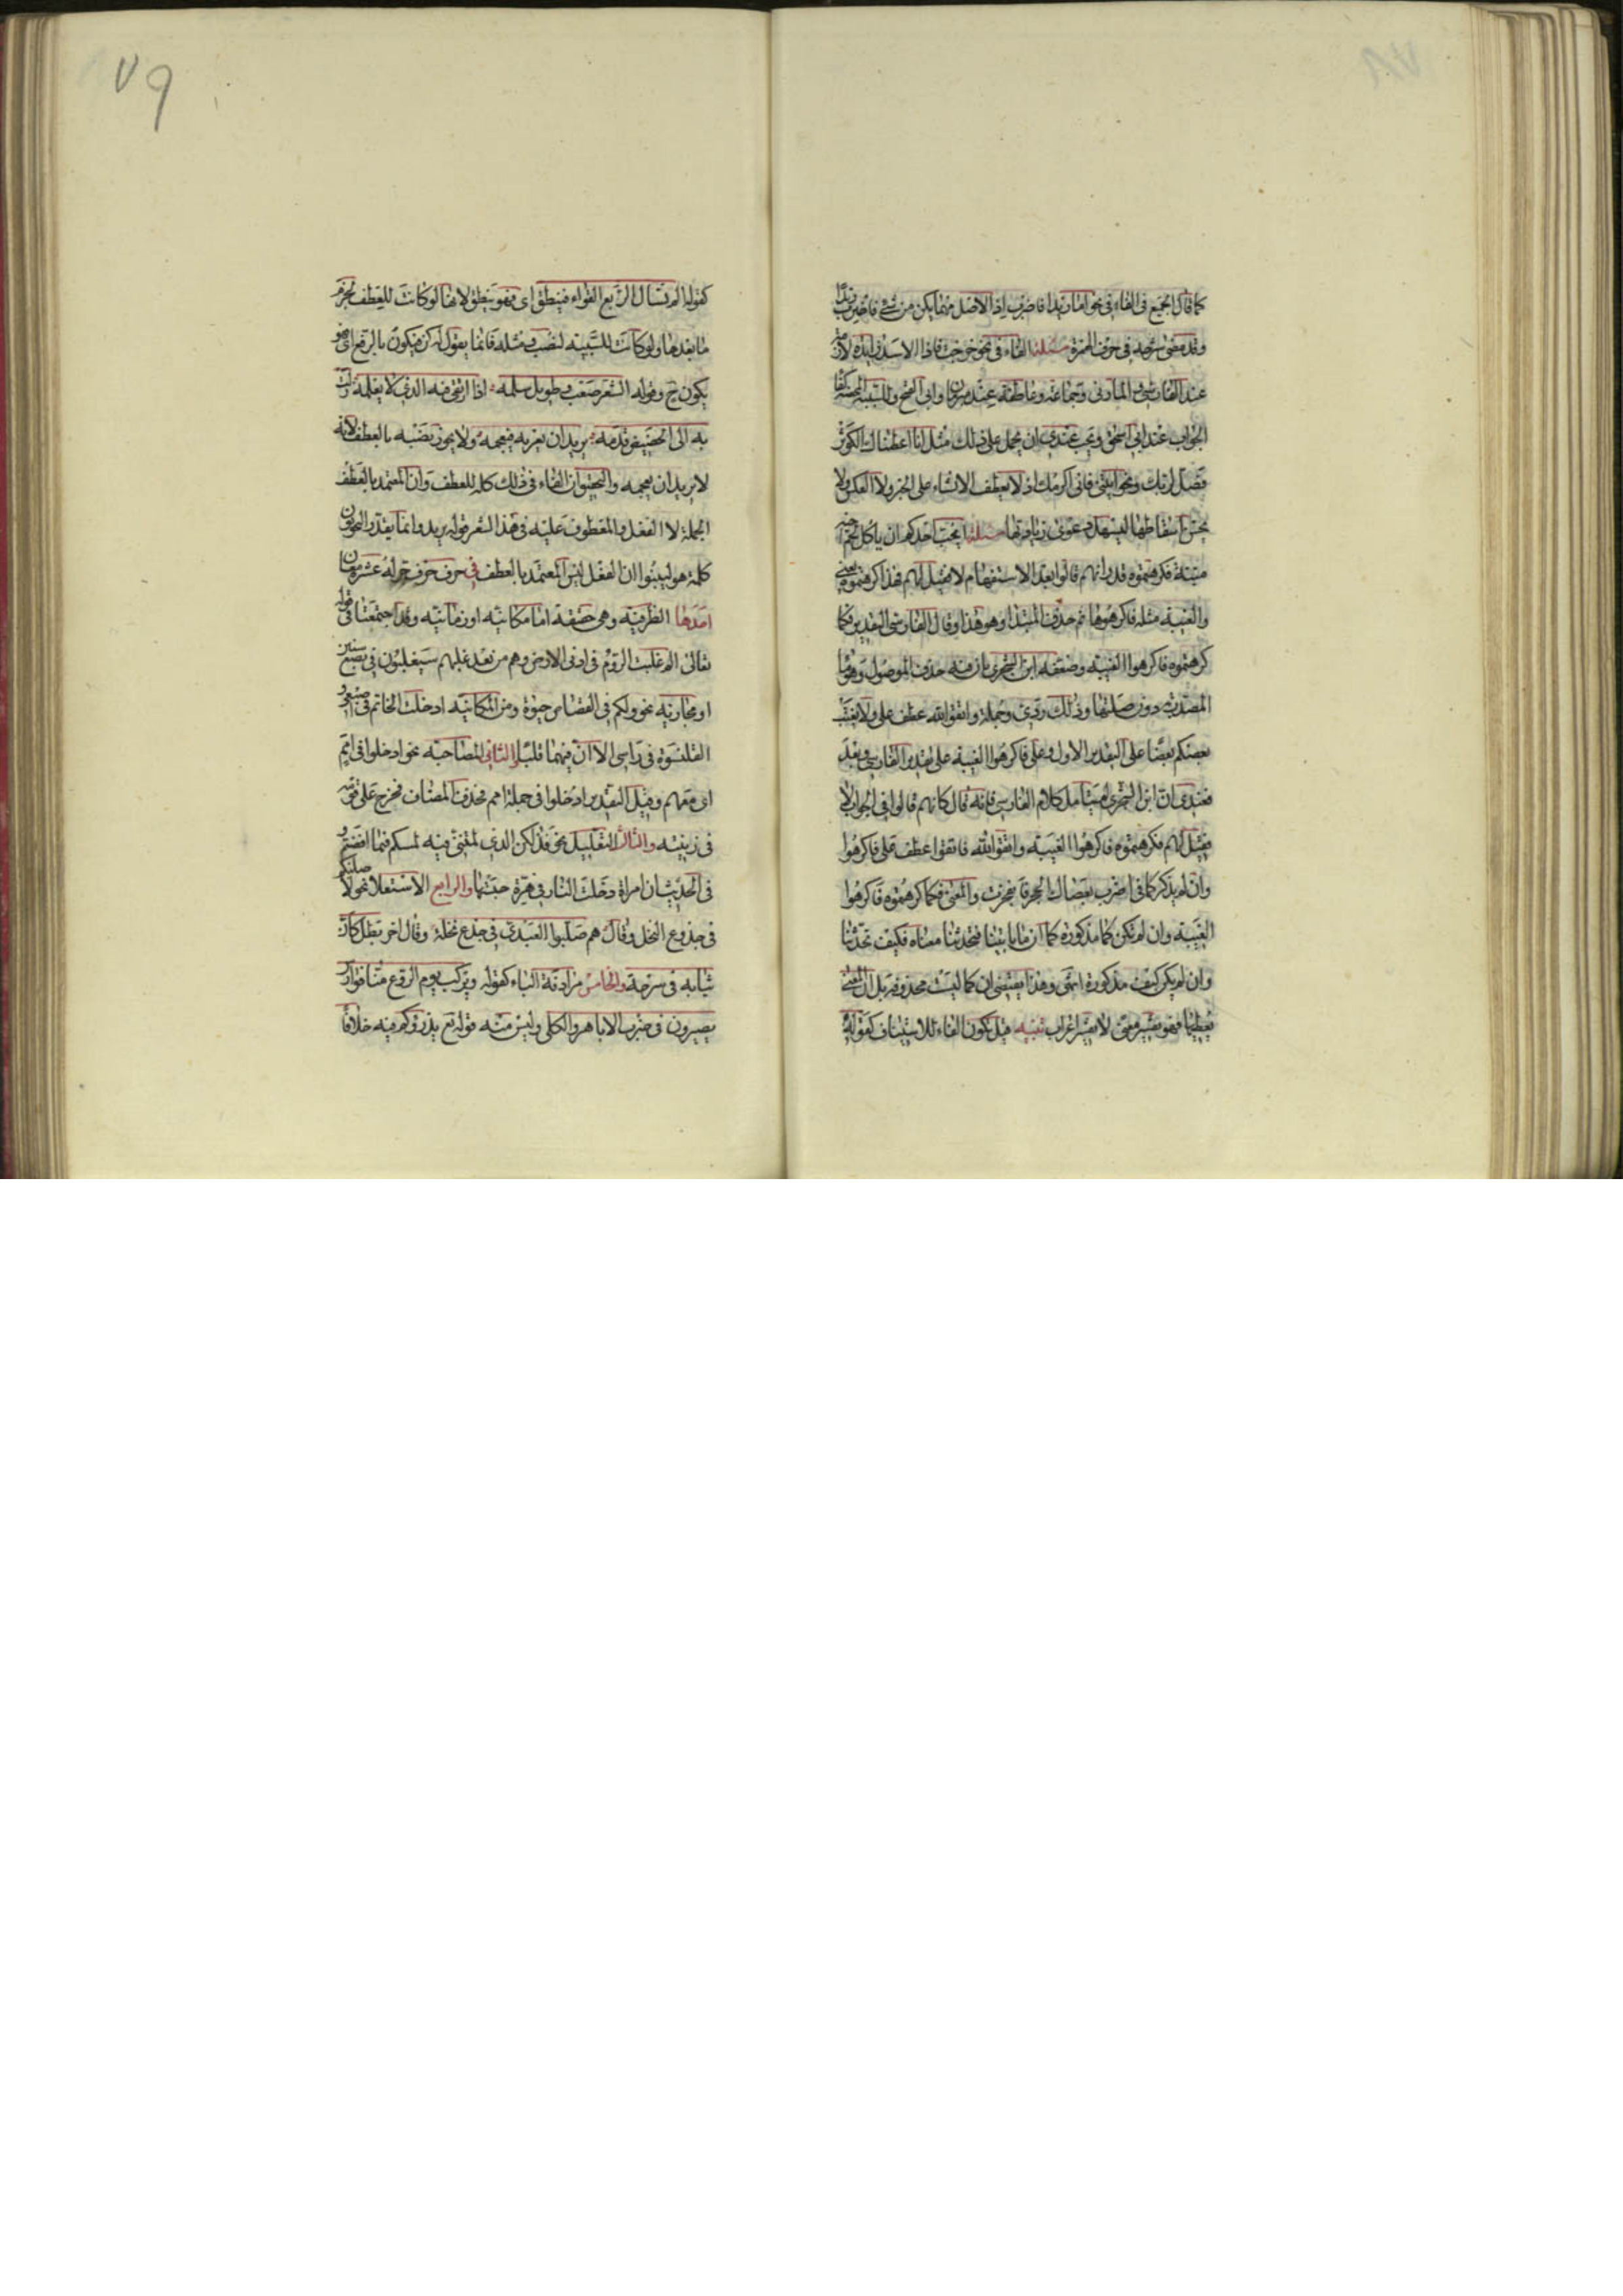 كما قال الجميع فى الفاء فى نحو اما زيدا فاضرب اذ الاصل مهما يكن من شئ فاضرب زيدا
وقد مضى شرحه فى حرف الهمزة مسئلة الفاء فى نحو خرجت فاذا الاسد زائدة لازمة
عند الفارسى والمازنى وجماعة وعاطفة عند مبرمان وابى الفتح وللسببية المحضة كفاء
الجواب عند ابى اسحق ويجب عندى ان يحمل على ذلك مثل انا اعطيناك الكوثر
فصل لربك ونحو ايتنى فانى اكرمك اذ لا يعطف الانشاء على الخبر ولا العكس ولا
يحسن اسقاطها ليسهل دعوى زيادتها مسئلة ايحب احدكم ان ياكل لحم اخيه
ميتا فكرهتموه قدر انهم قالوا بعد الاستفهام لا فقيل لهم فهذا كرهتموه يعنى
والغيبة مثله فاكرهوها ثم حذف المبتدا وهو هذا وقال الفارسى التقدير فكما
كرهتموه فاكرهوا الغيبة وضعفه ابن الشجرى بان فيه حذف الموصول وهو ما
المصدرية دون صلتها وذلك ردئ وجملة واتقوا الله عطف على ولا يغتب
بعضكم بعضا على التقدير الاول وعلى فاكرهوا الغيبة على تقدير الفارسى وبعد
فعندى ان ابن الشجرى لم يتامل كلام الفارسى فانه قال كانهم قالوا فى الجواب لا
فقيل لهم فكرهتموه فاكرهوا الغيبة واتقوا الله فاتقوا عطف على فاكرهوا
وان لم يذكر كما فى اضرب بعصاك الحجر فانفجرت والمعنى فكما كرهتموه فاكرهوا
الغيبة وان لم تكن كما مذكورة كما ان ما تاتينا فتحدثنا معناه فكيف تحدثنا
وان لم يكن كيف مذكورة انتهى وهذا يقتضى ان كما ليست محذوفة بل ان المعنى
يعطيها فهو تفسير معنى لا تفسير اعراب تنبيه قيل تكون الفاء للاستيناف كقوله
كقوله الم تسال الربع القواء فينطق اى فهو ينطق لانها لو كانت للعطف لجزم
ما بعدها ولو كانت للسببية لنصب ومثله فانما يقول له كن فيكون بالرفع اى فهو
يكون ح وقوله الشعر صعب وطويل سلمه اذا ارتقى فيه الذى لا يعلمه زلت
به الى الحضيض قدمه يريد ان يعربه فيعجمه ولا يجوز نصبه بالعطف لانه
لا يريد ان يعجمه والتحقيق ان الفاء فى ذلك كله للعطف وان المعتمد بالعطف
الجملة لا الفعل والمعطوف عليه فى هذا الشعر قوله يريد وانما يقدر النحويون
كلمة هو ليبينوا ان الفعل ليس المعتمد بالعطف فى حرف جر له عشرة معان
احدها الظرفية وهى حقيقة اما مكانية او زمانية وقد اجتمعتا فى قوله
تعالى الم غلبت الروم فى ادنى الارض وهم من بعد غلبهم سيغلبون فى بضع سنين
او مجازية نحو ولكم فى القصاص حيوة ومن المكانية ادخلت الخاتم فى اصبعى و
القلنسوة فى راسى الا ان فيهما قلبا الثانى المصاحبة نحو ادخلوا فى امم
اى معهم وقيل التقدير ادخلوا فى جملة امم فحذف المضاف فخرج على قومه
فى زينته والثالث التعليل نحو فذلكن الذى لمتننى فيه لمسكم فيما افضتم و
فى الحديث ان امراة دخلت النار فى هرة حبستها والرابع الاستعلا نحو لاصلبنكم
فى جذوع النخل وقال هم صلبوا العبدى فى جذع نخلة وقال اخر بطل كان
ثيابه فى سرحة والخامس مرادفة الباء كقوله ويركب يوم الروع منا فوارس
يصيرون فى ضرب الاباهر والكلى وليس منه قوله تع يذروكم فيه خلافا
٧٩